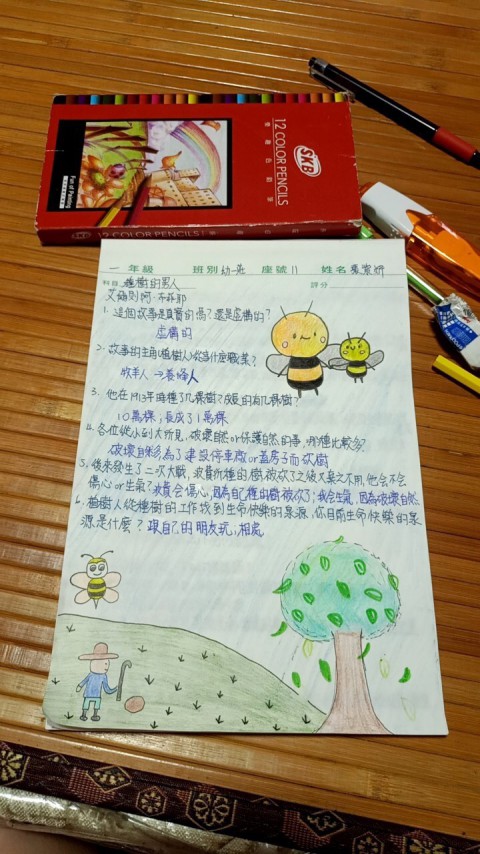 12 COLOR PENCILS
SKB
Fun of Painting
12 COLOR PENCILS
一 年級 班別 幼一 座號 11 姓名
科目 植樹的男人 評分
艾爾則阿·布菲耶
1. 這個故事是真實的嗎?還是虛構的?
虛構的
2. 故事的主角(植樹人)從事什麼職業?
牧羊人→養蜂人
3. 他在1913年時種了幾棵樹?成長的有幾棵樹?
10萬棵;長成了1萬棵
4. 各位從小到大所見,破壞自然or保護自然的事,哪種比較多?
破壞自然多為了建設停車廠or蓋房子而砍樹
5. 後來發生了二次大戰,浪費所種的樹被砍了之後又棄之不用,他會不會
傷心or生氣?我覺會傷心,因為自己種的樹被砍了;我會生氣,因為破壞自然
6. 植樹人從種樹的工作找到生命快樂的泉源,你目前生命快樂的泉
源是什麼?跟自己的朋友玩;相處